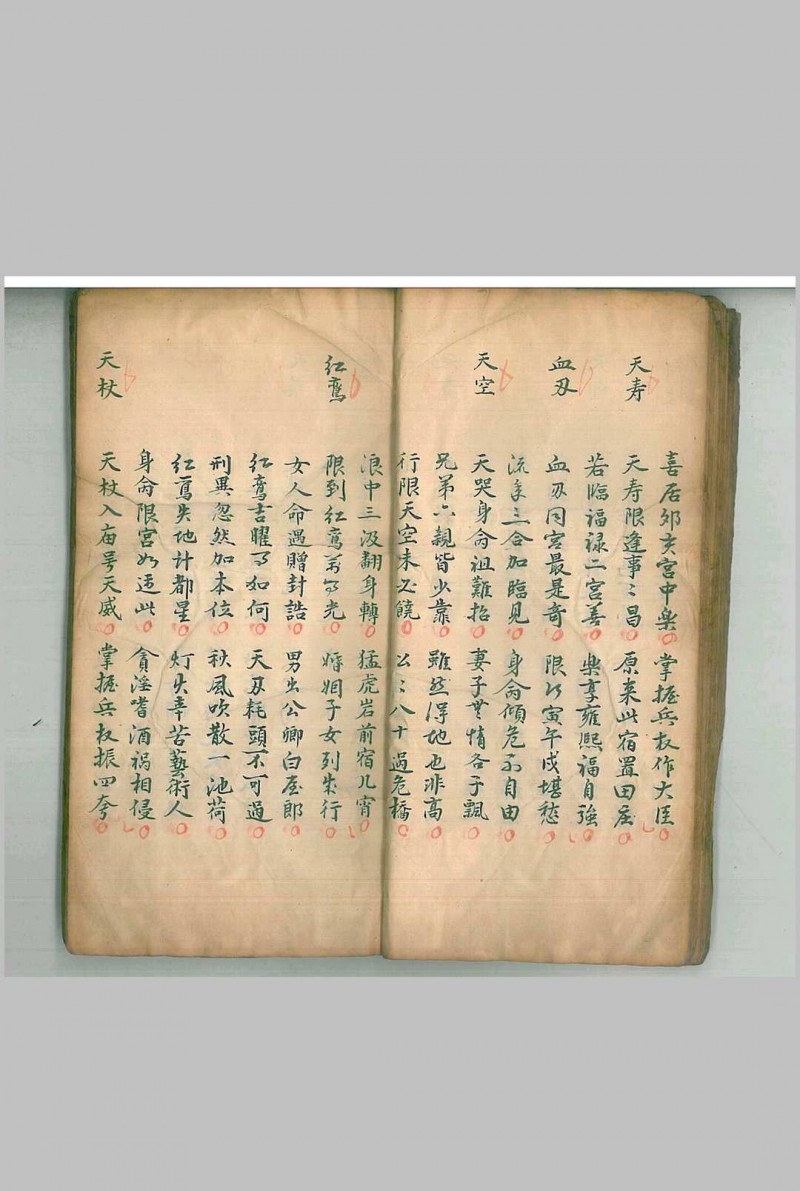 喜居卯亥宫中樂 掌握兵权作大臣
天寿
天寿限逢事〻昌 原来此宿置田庄
若臨福禄二宫善 樂享雍熙福自強
血刃
血刃同宫最是奇 限行寅午戍堪愁
流年三合加臨見 身命傾危不自由
天空
天哭身命祖難招 妻子無情各子飄
兄弟六親皆少靠 雖然得地也非高
行限天空来必饒 公〻八十過危橋
浪中三汲翻身轉 猛虎岩前宿几宵
红鸾
限到红鸾万有光 婚姻子女列成行
女人命遇贈封誥 男出公卿白屋郎
红鸾吉曜有如何 天刃耗頭不可過
刑異忽然加本位 秋风吹散一池荷
红鸾失地计都星 灯火辛苦藝術人
身命限宫如遇此 貪淫嗜酒禍相侵
天杖
天杖入庙号天威 掌握兵权振四夸